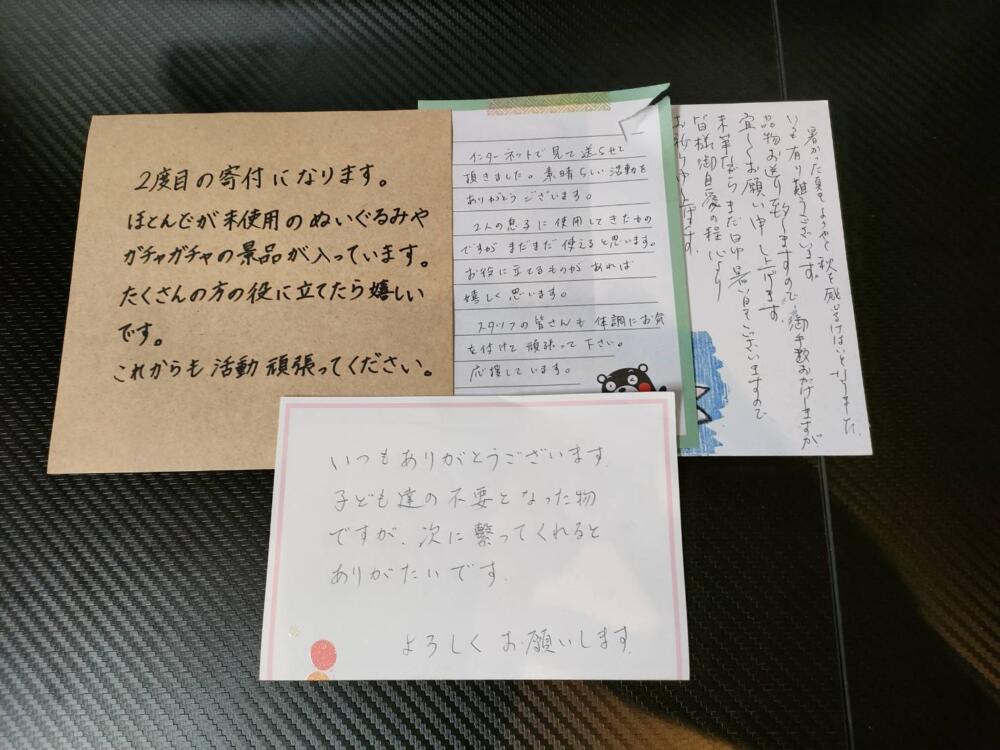 2度目の寄付になります。
ほとんどが未使用のぬいぐるみや
ガチャガチャの景品が入っています。
たくさんの方の役に立てたら嬉しい
です。
これからも活動頑張ってください。
インターネットで見て送らせて
頂きました。素晴らしい活動を
ありがとうございます。
2人の息子に使用してきたもの
ですがまだまだ使えると思います。
お役に立てるものがあれば
嬉しく思います。
スタッフの皆さんも体調にお気
を付けて頑張って下さい。
応援しています。
暑かった夏もようやく秋を感じるけはいとなりました
いつも有り難うございます。
品物お送り致しますので御手数おかけしますが
宜しくお願い申し上げます。
末筆ながらまだ日中暑うございますので
皆様御自愛の程心より
お祈り申し上げます。
いつもありがとうございます
子ども達の不要となった物
ですが、次に繋ってくれると
ありがたいです
よろしくお願いします